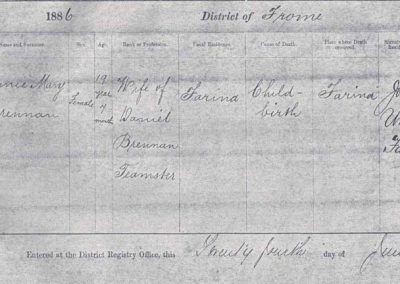 1886 District of Frome
Name and Surname. Sex. Age. Rank or Profession. Usual Residence. Cause of Death. Place where Death occurred.
Mary Female 19 Wife of Farina Child- Farina
Brennan years 4 Daniel birth
Brennan
Teamster
Entered at the District Registry Office, this day of